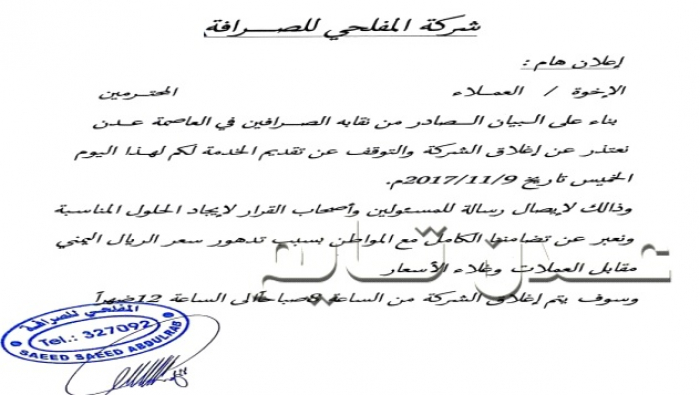 شركة المفلحي للصــرافة
إعلان هام :
الإخوة / العمـلاء المحترمين
بناء على البيان الصادر من نقابه الصرافين في العاصمة عدن
نعتذر عن إغلاق الشركة والتوقف عن تقديم الخدمة لكم لهذا اليوم
الخميس تاريخ 2017/11/9م.
وذالك لايصال رسالة للمسئولين وأصحاب القرار لايجاد الحلول المناسبة
ونعبر عن تضامننا الكامل مع المواطن بسبب تدهور سعر الريال اليمني
مقابل العملات وغلاء الأسعار
وسوف يتم إغلاق الشركة من الساعة 8صباحاًالى الساعة 12ضهراً
عدن تايم
المفلحي للصرافة
Tel.: 327092
SAEED SAEED ABDULRAB